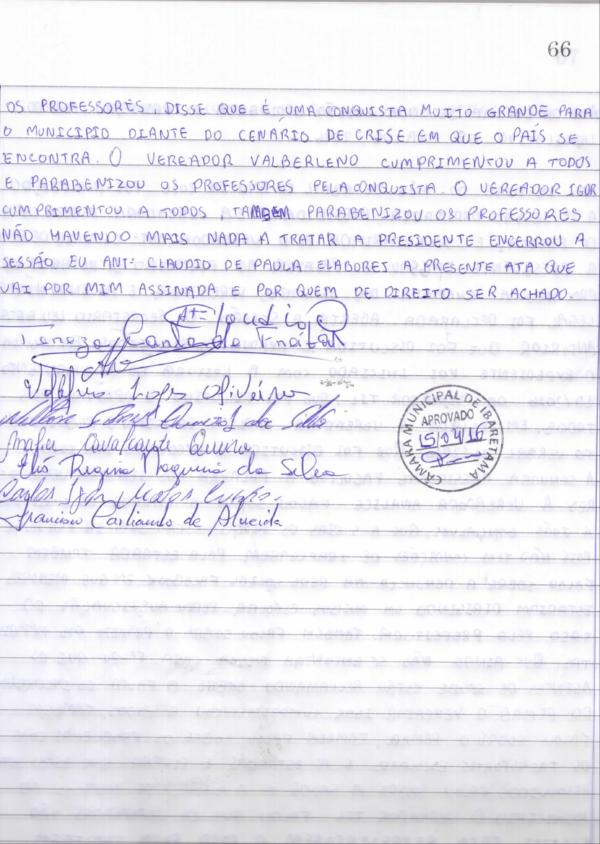 66
OS PROFESSORES, DISSE QUE É UMA CONQUISTA MUITO GRANDE PARA
O MUNICIPIO DIANTE DO CENÁRIO DE CRISE EM QUE O PAÍS SE
ENCONTRA. O VEREADOR VALBERLENO CUMPRIMENTOU A TODOS
E PARABENIZOU OS PROFESSORES PELA CONQUISTA. O VEREADOR IGOR
CUMPRIMENTOU A TODOS, TAMBEM PARABENIZOU OS PROFESSORES
NÃO HAVENDO MAIS NADA A TRATAR A PRESIDENTE ENCERROU A
SESSÃO EU ANTº CLAUDIO DE PAULA ELABOREI A PRESENTE ATA QUE
VAI POR MIM ASSINADA E POR QUEM DE DIREITO SER ACHADO.
Lopes Oliveira
da Silva
Cavalcante
Regina Nogueira da Silva
Carlos
Francisco Carliando de Almeida
CÂMARA MUNICIPAL DE IBARETAMA
APROVADO
15/04/16